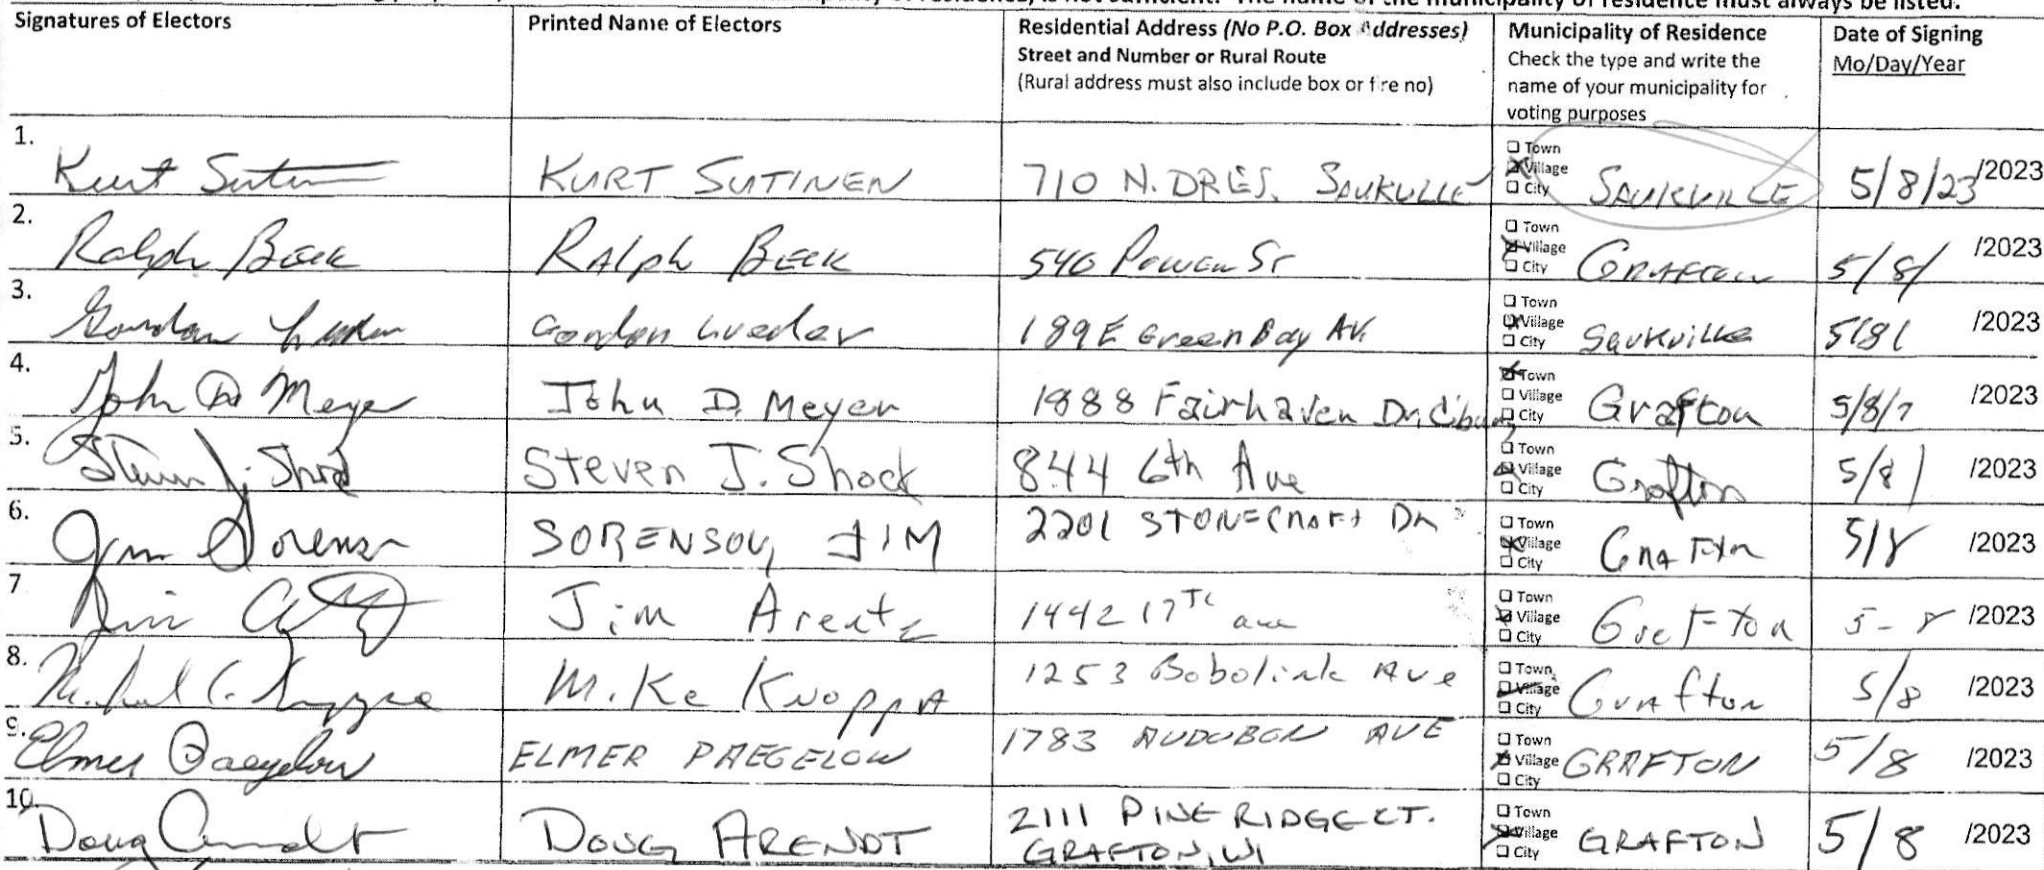 Signatures of Electors Printed Name of Electors Residential Address (No P.O. Box Addresses) Municipality of Residence Date of Signing
Street and Number or Rural Route Check the type and write the Mo/Day/Year
(Rural address must also include box or fire no) name of your municipality for
voting purposes
1. Kurt Sutinen KURT SUTINEN 710 N. DRIES, SAUKVILLE ☐ Town ☒ Village ☐ City SAUKVILLE 5/8/23 /2023
2. Ralph Beck RALph BECK 540 Power St ☐ Town ☒ Village ☐ City GRAFTON 5/8/ /2023
3. Gordon Lueder Gordon Lueder 189 E Green Bay AV. ☐ Town ☒ Village ☐ City Saukville 5/8/ /2023
4. John D Meyer John D. Meyer 1888 Fairhaven Dr, ☒ Town ☐ Village ☐ City Grafton 5/8/ /2023
5. Steven J. Shock Steven J. Shock 844 6th Ave ☐ Town ☒ Village ☐ City Grafton 5/8/ /2023
6. Jim Sorenson SORENSON, JIM 2201 STONECROFT DR ☐ Town ☒ Village ☐ City GRAFTON 5/8 /2023
7 Jim Jim Arentz 1442 17th ave ☐ Town ☒ Village ☐ City Grafton 5-8 /2023
8. Michael C. Mike KNOPPA 1253 Bobolink AVe ☐ Town ☒ Village ☐ City Grafton 5/8 /2023
9. Elmer Paegelow ELMER PAEGELOW 1783 AUDUBON AVE ☐ Town ☒ Village ☐ City GRAFTON 5/8 /2023
10. Doug Arendt DOUG ARENDT 2111 PINE RIDGE CT. ☐ Town ☒ Village ☐ City GRAFTON 5/8 /2023
GRAFTON, WI